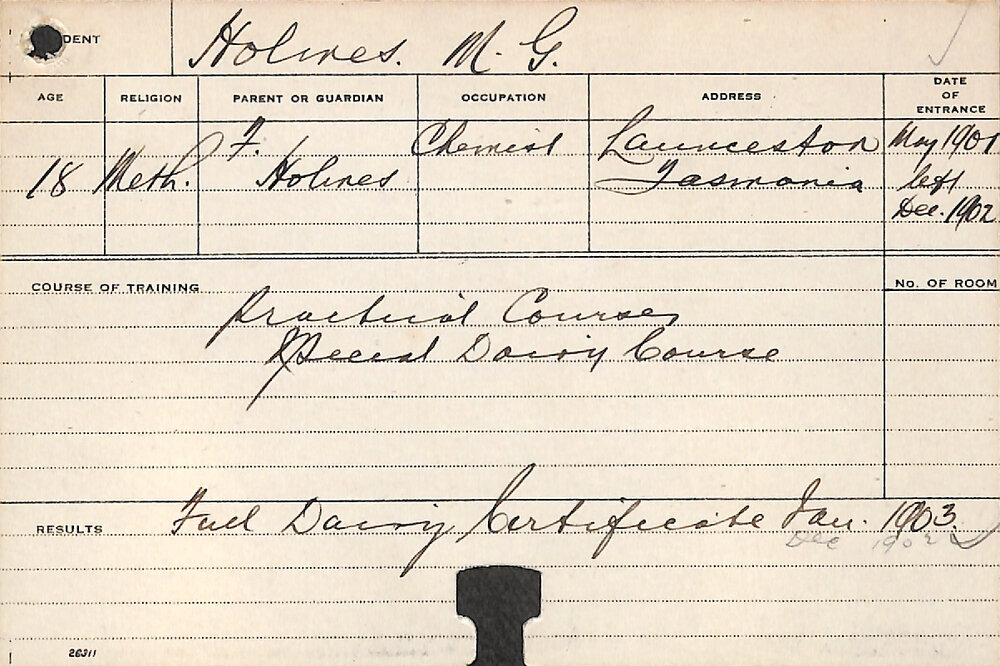 DENT Holmes. M. G.
AGE RELIGION PARENT OR GUARDIAN OCCUPATION ADDRESS DATE OF ENTRANCE
F. Chemist Launceston May 1901
18 Meth. Holmes Tasmania left
Dec. 1902
COURSE OF TRAINING No. OF ROOM
Practical Course,
Special Dairy Course
RESULTS Full Dairy Certificate Jan. 1903.
Dec 1902
26311